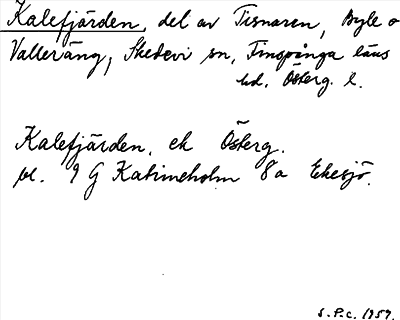 Kalefjärden, del av Tisnaren, Byle o
Valleräng, Skedevi sn, Finspånga läns
hd. Österg. l.
Kalefjärden. ek Österg.
bl. 9 G Katrineholm 8a Ekesjö.
S.P.C. 1959.